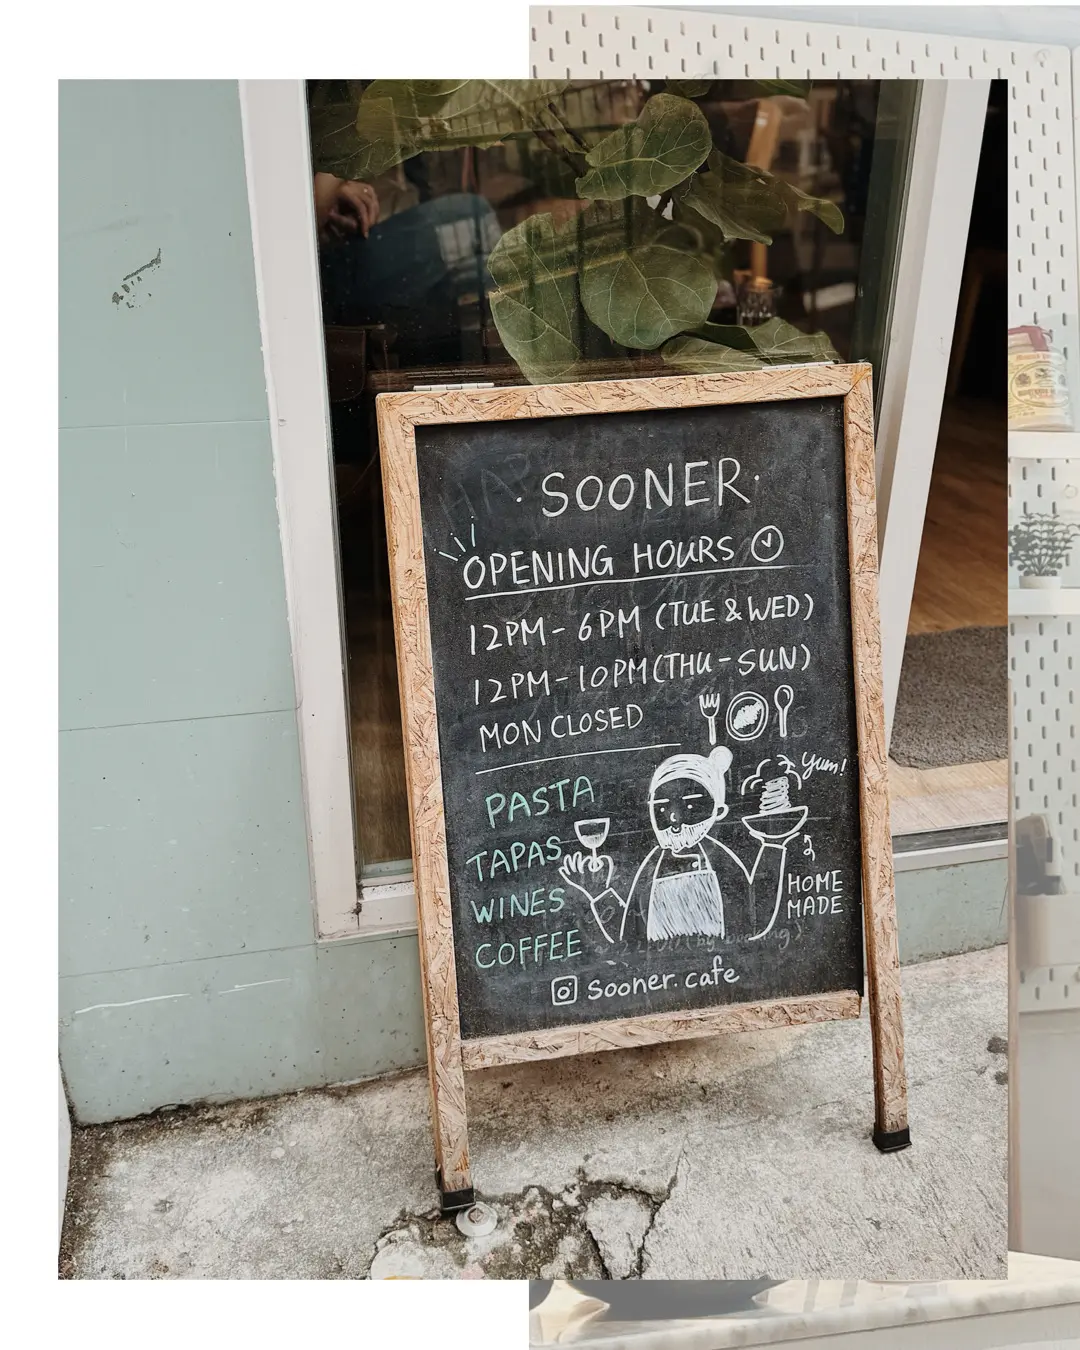 · SOONER ·
OPENING HOURS
12PM - 6PM (TUE & WED)
12PM - 10PM (THU - SUN)
MON CLOSED
Yum!
PASTA
TAPAS
WINES
COFFEE
HOME
MADE
sooner.cafe